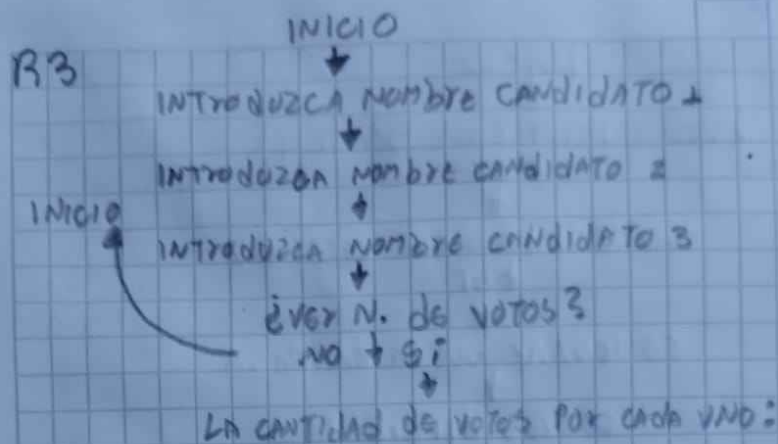 INICIO
R3
INTRODUZCA NOMBRE CANDIDATO 1
INTRODUZCA NOMBRE CANDIDATO 2
INICIO
INTRODUZCA NOMBRE CANDIDATO 3
¿VER N. DE VOTOS?
NO SI
LA CANTIDAD DE VOTOS POR CADA UNO: